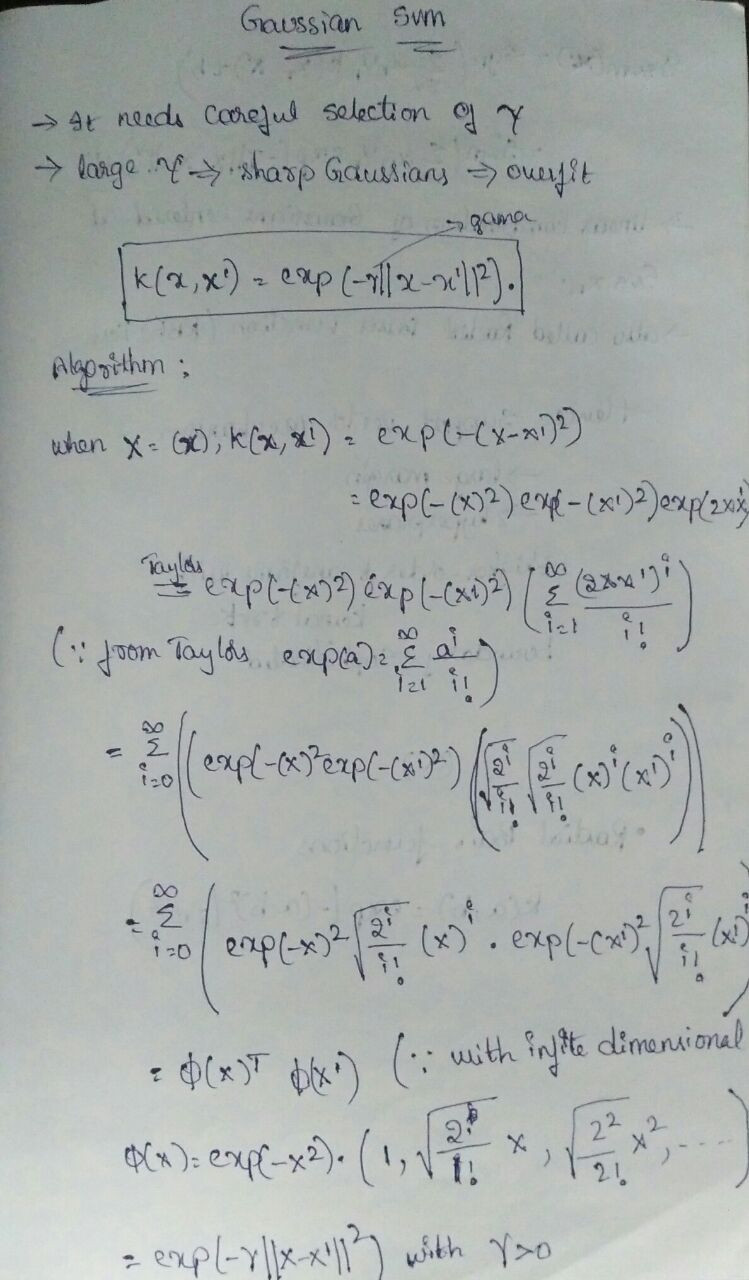 Gaussian SVM
→ It needs careful selection of γ
→ large γ ⇒ sharp Gaussians ⇒ overfit
→ gama
K(x, x') = exp(-γ||x-x'||²).
Algorithm :
when x = (x); K(x, x') = exp(-(x-x')²)
= exp(-(x)²) exp(-(x')²) exp(2xx')
Taylors
= exp(-(x)²) exp(-(x')²) (∞ Σ i=1 (2xx')^i / i!)
(∵ from Taylors exp(a) = ∞ Σ i=1 a^i / i!)
= ∞ Σ i=0 ((exp(-(x)² exp(-(x')²) (√(2^i / i!) √(2^i / i!) (x)^i (x')^i))
= ∞ Σ i=0 (exp(-x)² √(2^i / i!) (x)^i . exp(-(x')² √(2^i / i!) (x')^i)
= φ(x)ᵀ φ(x') (∵ with infite dimensional
φ(x) = exp(-x²). (1, √(2 / 1!) x, √(2² / 2!) x², ....)
= exp(-γ||x-x'||²) with γ>0